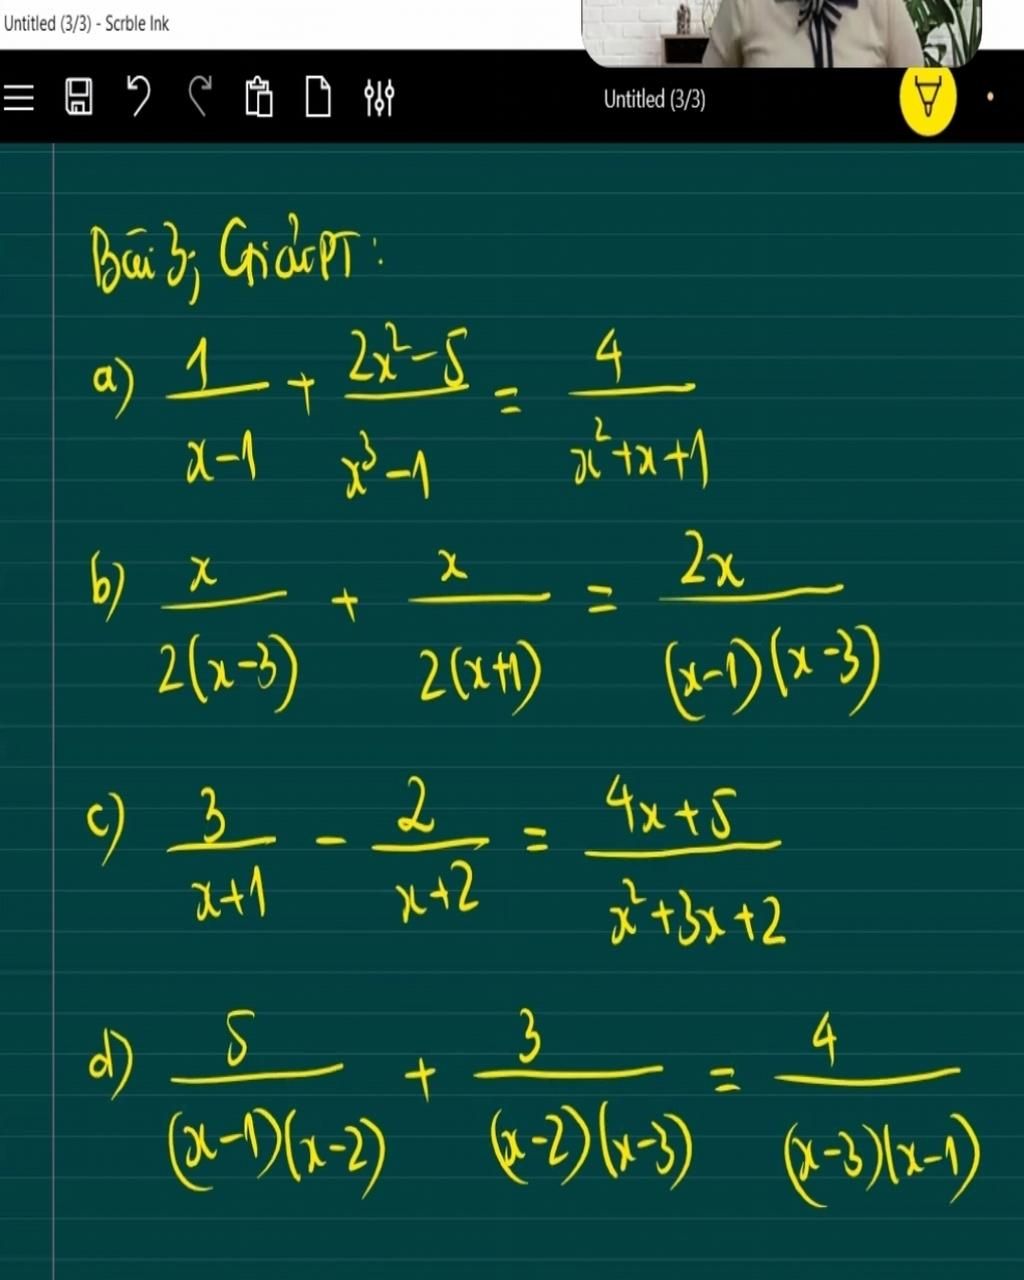 Untitled (3/3) - Scrble Ink
Untitled (3/3)
Bài 3; Giải PT:
a) 1/(x-1) + (2x²-5)/(x³-1) = 4/(x²+x+1)
b) x/(2(x-3)) + x/(2(x+1)) = 2x/((x-1)(x-3))
c) 3/(x+1) - 2/(x+2) = (4x+5)/(x²+3x+2)
d) 5/((x-1)(x-2)) + 3/((x-2)(x-3)) = 4/((x-3)(x-1))